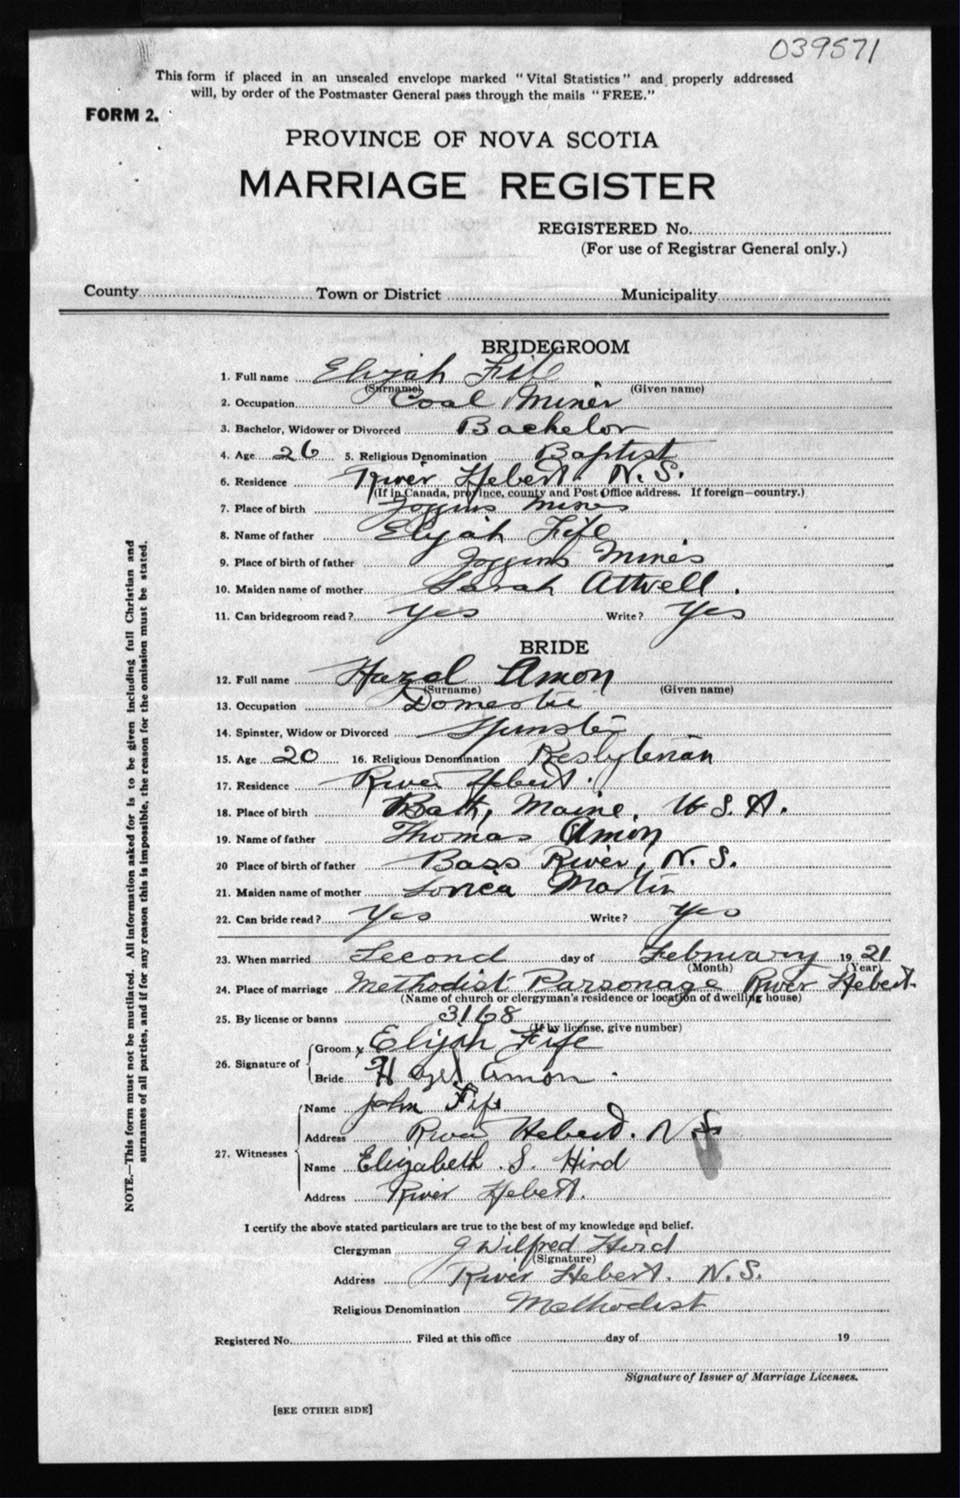 039571
This form if placed in an unsealed envelope marked "Vital Statistics" and properly addressed
will, by order of the Postmaster General pass through the mails "FREE."
FORM 2.
PROVINCE OF NOVA SCOTIA
MARRIAGE REGISTER
REGISTERED No.
(For use of Registrar General only.)
County Town or District Municipality
BRIDEGROOM
1. Full name Elijah Fife
(Surname) (Given name)
2. Occupation Coal Miner
3. Bachelor, Widower or Divorced Bachelor
4. Age 26 5. Religious Denomination Baptist
6. Residence River Hebert. N.S.
(If in Canada, province, county and Post Office address. If foreign—country.)
7. Place of birth Joggins Mines
8. Name of father Elijah Fife
9. Place of birth of father Joggins Mines
10. Maiden name of mother Sarah Attwell.
11. Can bridegroom read? Yes Write? Yes
BRIDE
12. Full name Hazel Amon
(Surname) (Given name)
13. Occupation Domestic
14. Spinster, Widow or Divorced Spinster
15. Age 20 16. Religious Denomination Presbyterian
17. Residence River Hebert.
18. Place of birth Bath, Maine, U.S.A.
19. Name of father Thomas Amon
20 Place of birth of father Bass River, N.S.
21. Maiden name of mother Martin
22. Can bride read? Yes Write? Yes
23. When married Second day of February 1921
(Month) (Year)
24. Place of marriage Methodist Parsonage River Hebert.
(Name of church or clergyman's residence or location of dwelling house)
25. By license or banns 3168
(If by license, give number)
26. Signature of
Groom x Elijah Fife
Bride Hazel Amon.
27. Witnesses
Name John Fife
Address River Hebert. N.S.
Name Elizabeth S. Hird
Address River Hebert.
I certify the above stated particulars are true to the best of my knowledge and belief.
Clergyman J Wilfred Hird
(Signature)
Address River Hebert. N.S.
Religious Denomination Methodist
Registered No. Filed at this office day of 19
Signature of Issuer of Marriage Licenses.
[SEE OTHER SIDE]
NOTE.—This form must not be mutilated. All information asked for is to be given including full Christian and
surnames of all parties, and if for any reason this is impossible, the reason for the omission must be stated.